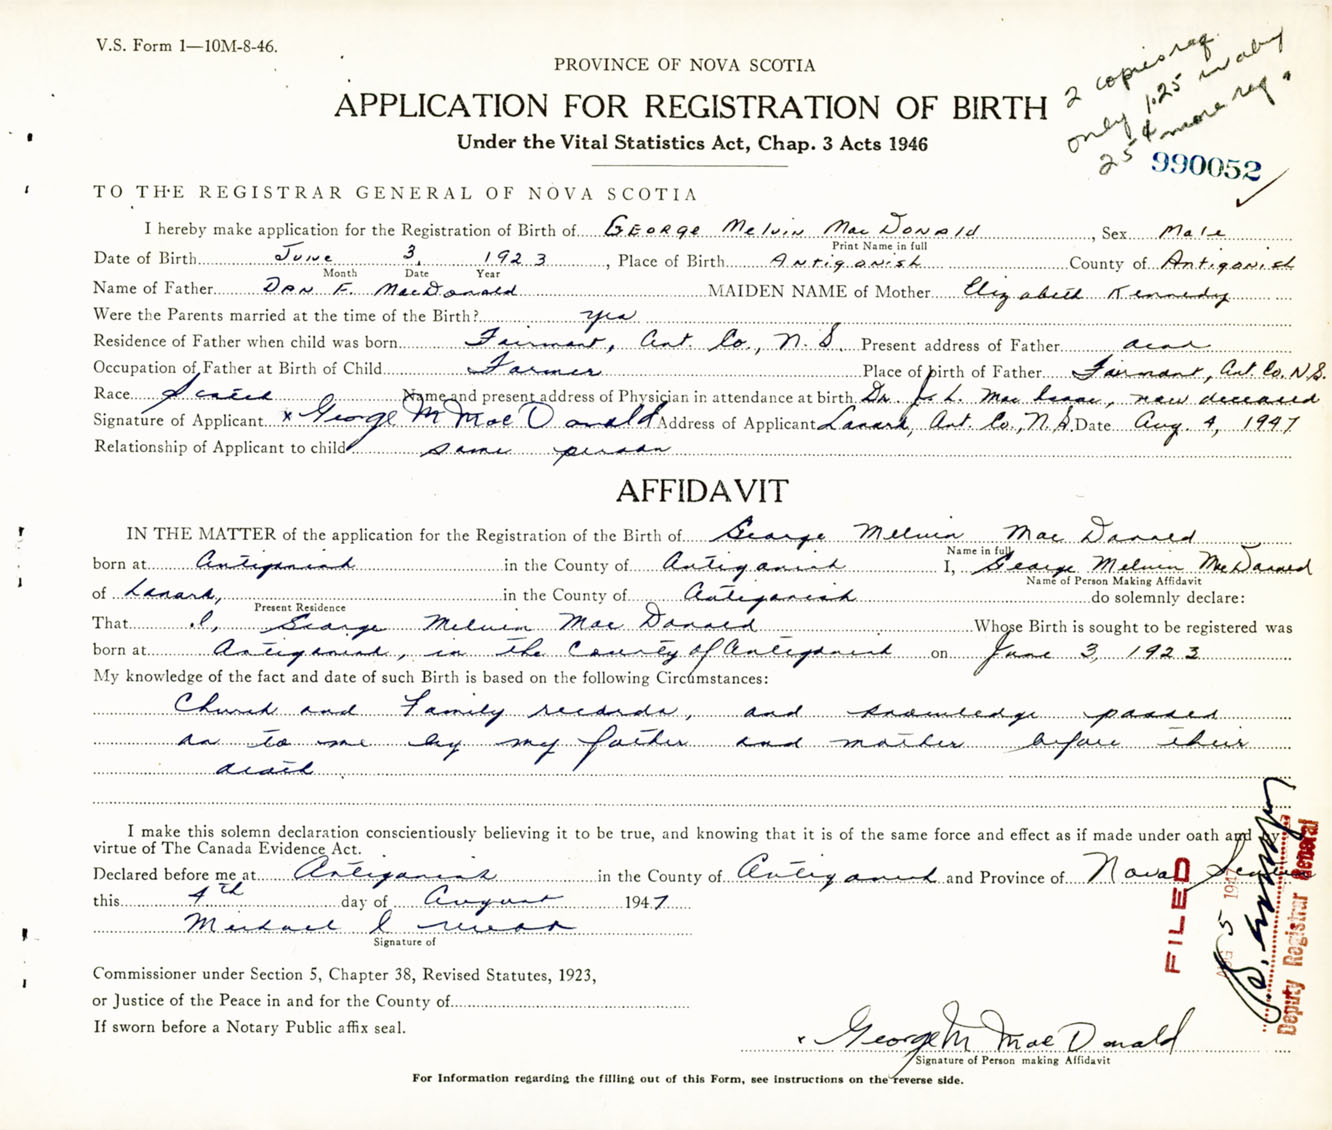 V.S. Form 1—10M-8-46.
2 copies req
only 1.25 in aby
25¢ more req.
PROVINCE OF NOVA SCOTIA
APPLICATION FOR REGISTRATION OF BIRTH
Under the Vital Statistics Act, Chap. 3 Acts 1946
990052
TO THE REGISTRAR GENERAL OF NOVA SCOTIA
I hereby make application for the Registration of Birth of George Melvin MacDonald, Sex Male
Print Name in full
Date of Birth June 3, 1923, Place of Birth Antigonish County of Antigonish
Month Date Year
Name of Father Dan F. MacDonald MAIDEN NAME of Mother Elizabeth Kennedy
Were the Parents married at the time of the Birth? yes
Residence of Father when child was born Fairmont, Ant. Co., N.S. Present address of Father dead
Occupation of Father at Birth of Child Farmer Place of birth of Father Fairmont, Ant. Co. N.S.
Race Scotch Name and present address of Physician in attendance at birth Dr. J. L. MacIsaac, now deceased
Signature of Applicant x George M MacDonald Address of Applicant Lanark, Ant. Co., N.S. Date Aug. 4, 1947
Relationship of Applicant to child same person
AFFIDAVIT
IN THE MATTER of the application for the Registration of the Birth of George Melvin MacDonald
Name in full
born at Antigonish in the County of Antigonish I, George Melvin McDonald
Name of Person Making Affidavit
of Lanark, in the County of Antigonish do solemnly declare:
Present Residence
That I, George Melvin MacDonald Whose Birth is sought to be registered was
born at Antigonish, in the County of Antigonish on June 3, 1923
My knowledge of the fact and date of such Birth is based on the following Circumstances:
Church and Family records, and knowledge passed
on to me by my father and mother before their
death
I make this solemn declaration conscientiously believing it to be true, and knowing that it is of the same force and effect as if made under oath and by
virtue of The Canada Evidence Act.
Declared before me at Antigonish in the County of Antigonish and Province of Nova Scotia
this 4th day of August 1947
Michael
Signature of
Commissioner under Section 5, Chapter 38, Revised Statutes, 1923,
or Justice of the Peace in and for the County of
If sworn before a Notary Public affix seal.
x George M MacDonald
Signature of Person making Affidavit
For Information regarding the filling out of this Form, see instructions on the reverse side.
FILED
AUG 5 1947
Deputy Registrar General